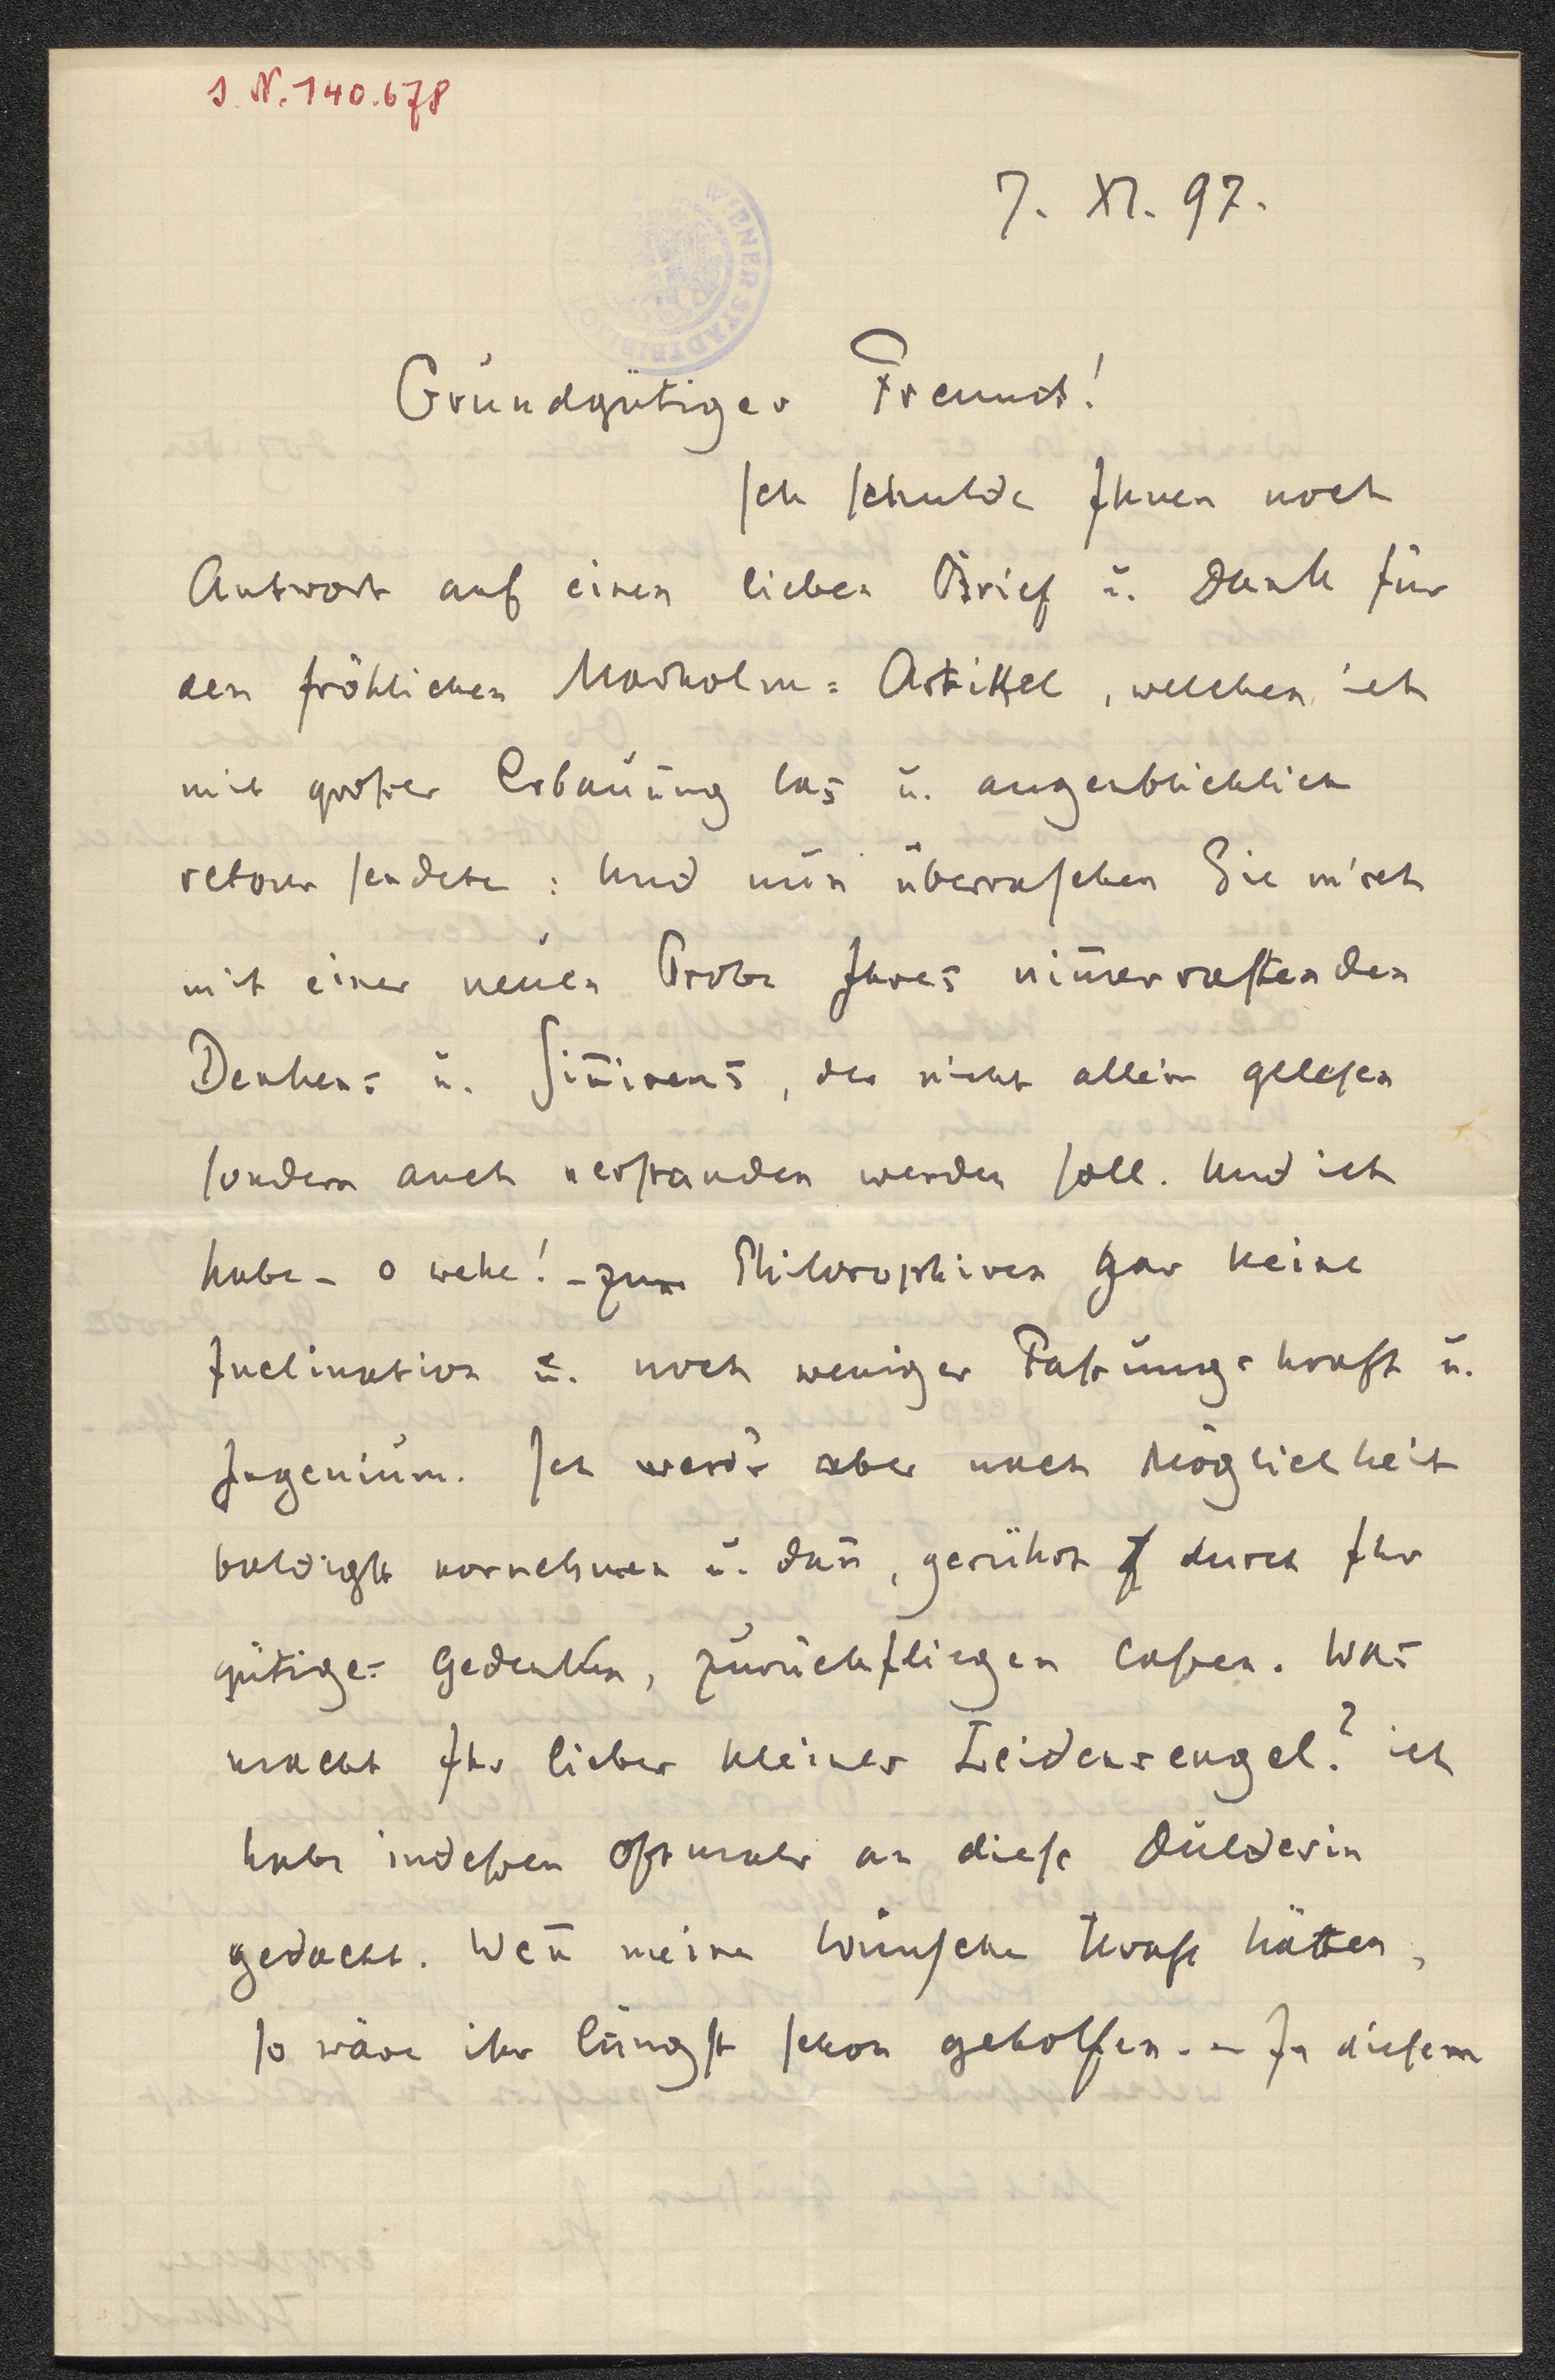 J. N. 140.678
WIENER STADTBIBLIO
7. XI. 97.
Grundgütiger Freund!
Ich schulde Ihnen noch
Antwort auf einen lieben Brief u. Dank für
den fröhlichen Marholm-Artikkel, welchen ich
mit großer Erbauung las u. augenblicklich
retour sendete: Und nun überraschen Sie mich
mit einer neuen Probe Ihres nim̅errastenden
Denkens u. Sin̅irens, der nicht allein gelesen
sondern auch verstanden werden soll. Und ich
habe - o wehe! - zum Philosophiren gar keine
Inclination u. noch weniger Faßungskraft u.
Ingenium. Ich werd's aber nach Möglichkeit
baldigst vornehmen u. dan̅, gerührt durch Ihr
gütiges Gedenken, zurückfliegen laßen. Was
macht Ihr lieber kleiner Leidensengel? ich
habe indeßen oftmals an diese Dulderin
gedacht. Wen̅ meine Wünsche Kraft hätten,
so wäre ihr längst schon geholfen. - In diesem